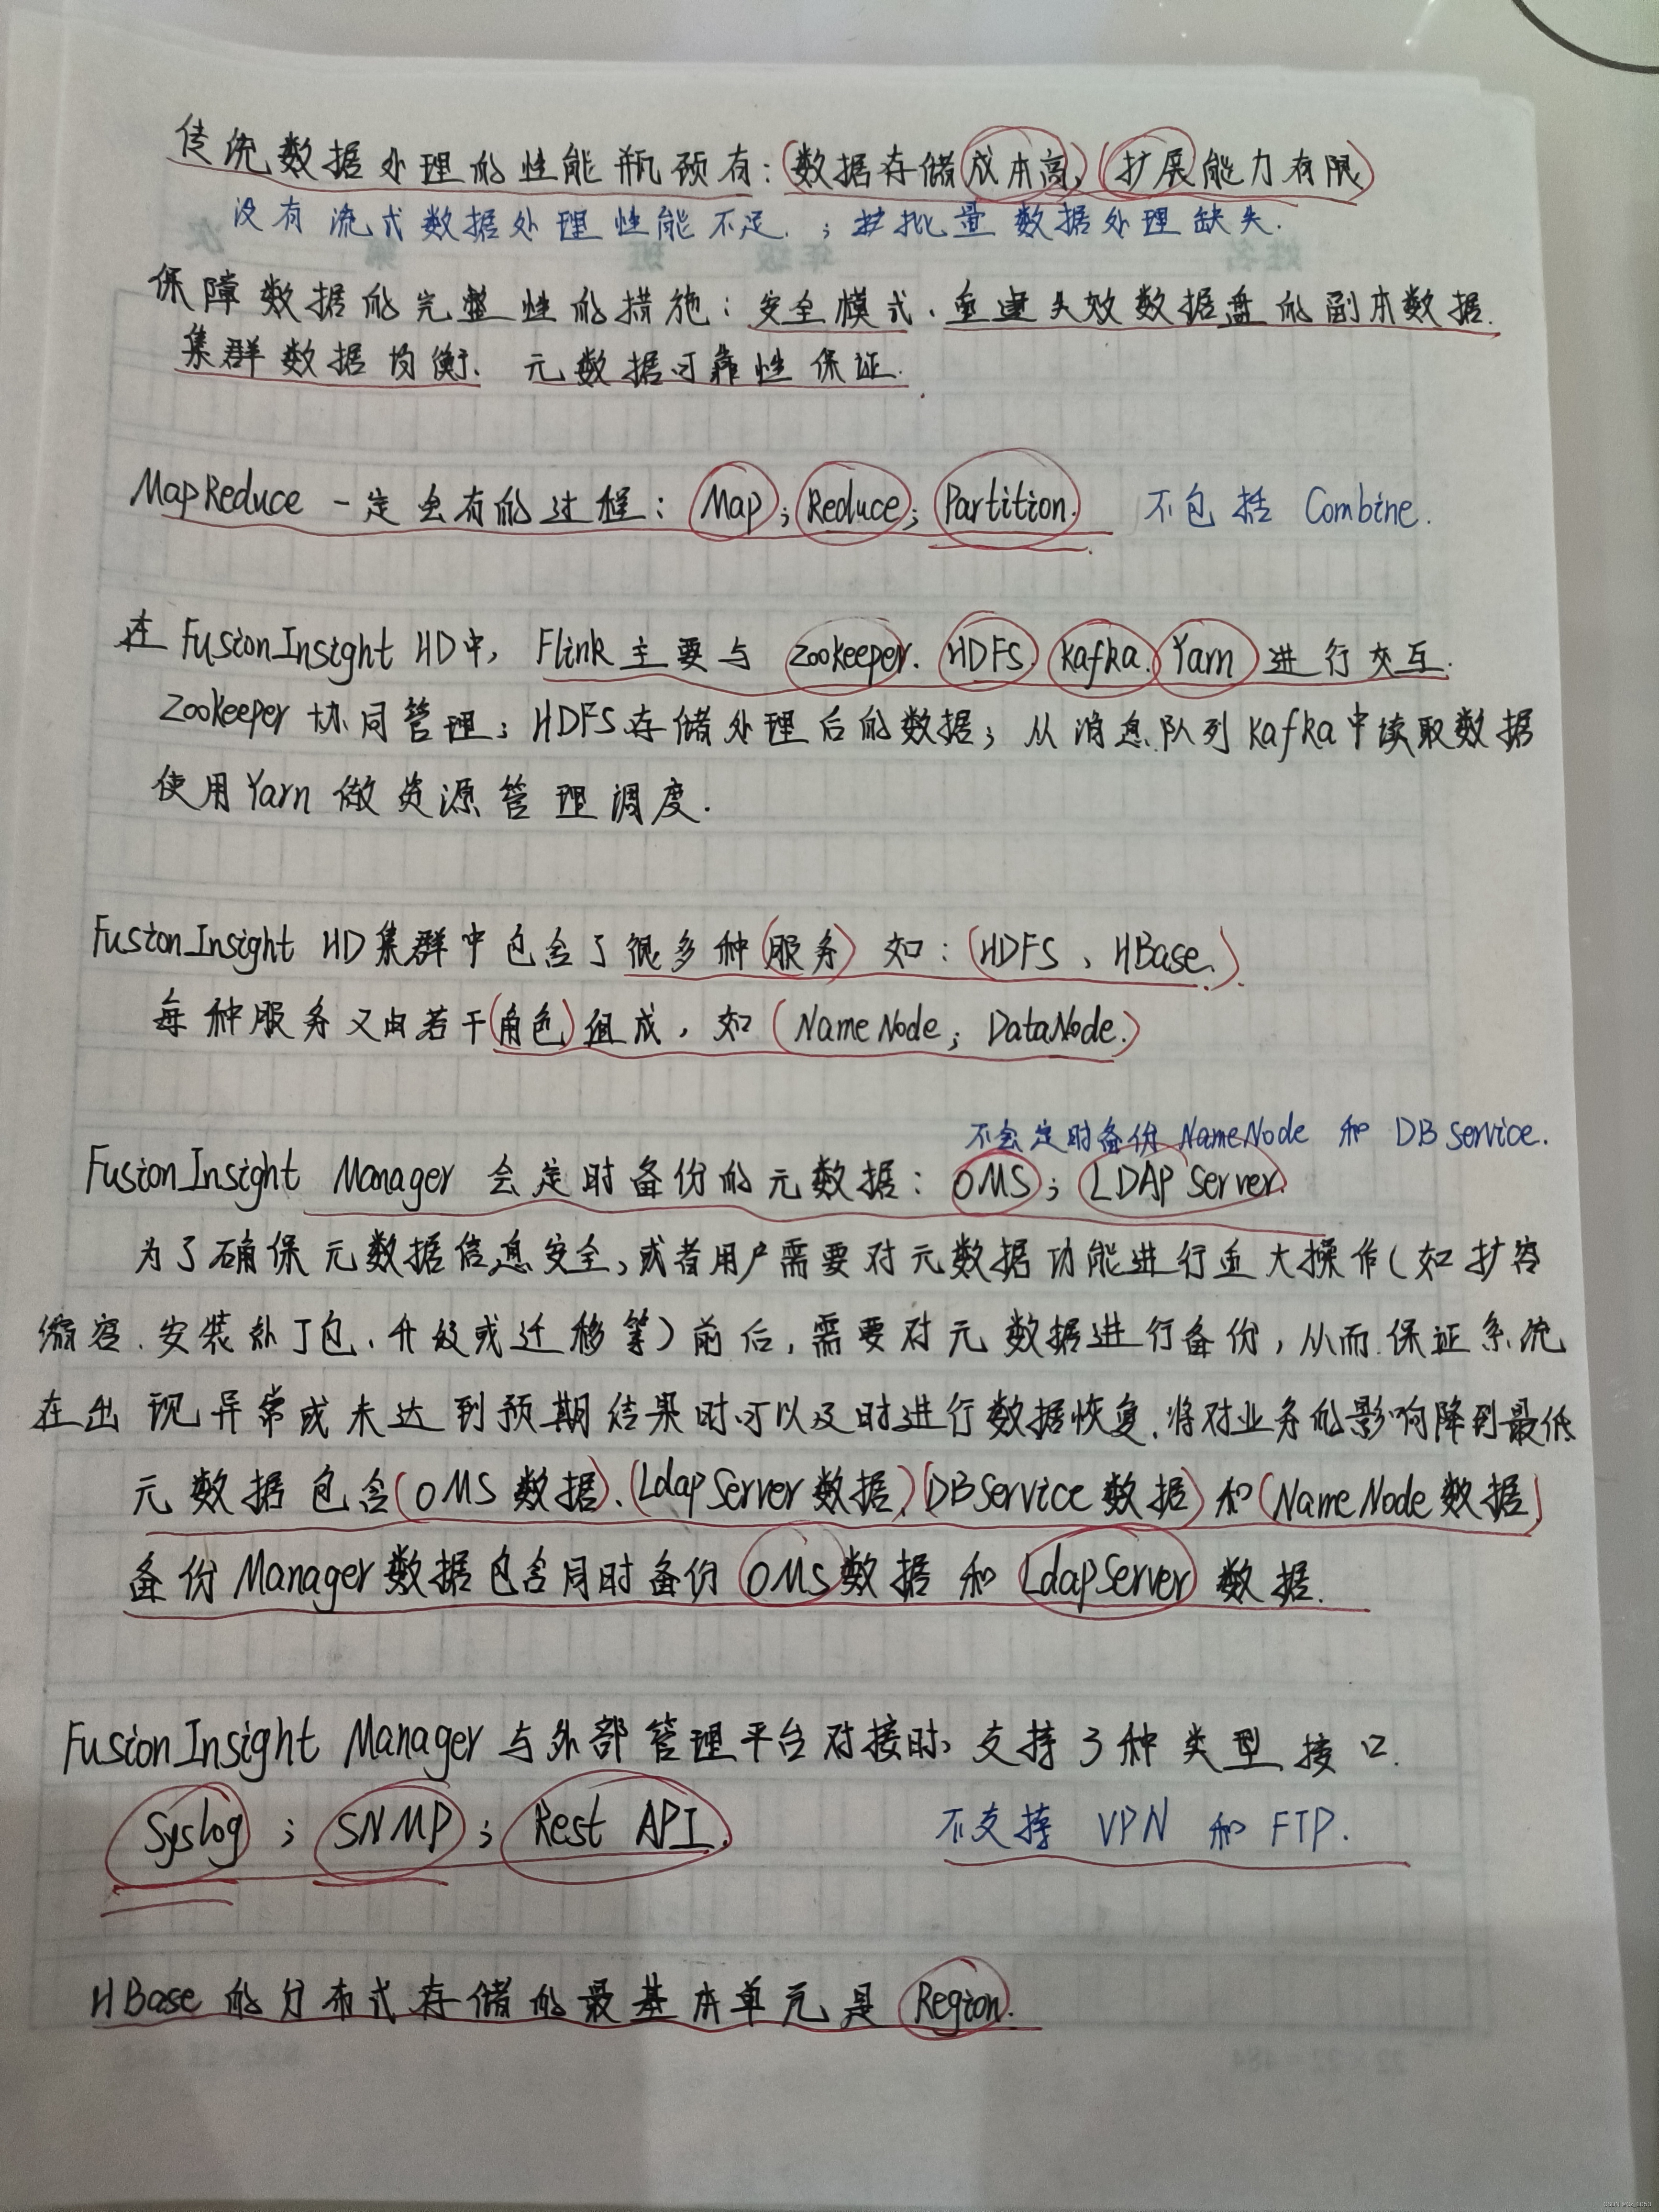 传统数据处理的性能瓶颈有：(数据存储成本高)(扩展能力有限)
没有流式数据处理性能不足；批量数据处理缺失.
保障数据的完整性的措施：安全模式、重建失效数据盘的副本数据.
集群数据均衡、元数据可靠性保证.
MapReduce 一定会有的过程：Map；Reduce；Partition. 不包括 Combine.
在 FusionInsight HD中，Flink 主要与 Zookeeper. HDFS. Kafka. Yarn 进行交互.
Zookeeper 协同管理；HDFS存储处理后的数据；从消息队列Kafka中读取数据
使用Yarn 做资源管理调度.
FusionInsight HD集群中包含了很多种(服务) 如：(HDFS、HBase.)
每种服务又由若干(角色)组成，如 (NameNode；DataNode.)
不会定时备份NameNode 和 DB Service.
FusionInsight Manager 会定时备份的元数据：OMS；LDAP Server.
为了确保元数据信息安全，或者用户需要对元数据功能进行重大操作(如扩容
缩容、安装补丁包、升级或迁移等)前后，需要对元数据进行备份，从而保证系统
在出现异常或未达到预期结果时可以及时进行数据恢复.将对业务的影响降到最低
元数据包含(OMS数据)、(LdapServer数据)、(DBService数据)和(NameNode数据)
备份Manager数据包含同时备份OMS数据和LdapServer数据.
FusionInsight Manager与外部管理平台对接时，支持3种类型接口.
Syslog；SNMP；Rest API. 不支持 VPN 和 FTP.
HBase的分布式存储的最基本单元是Region.